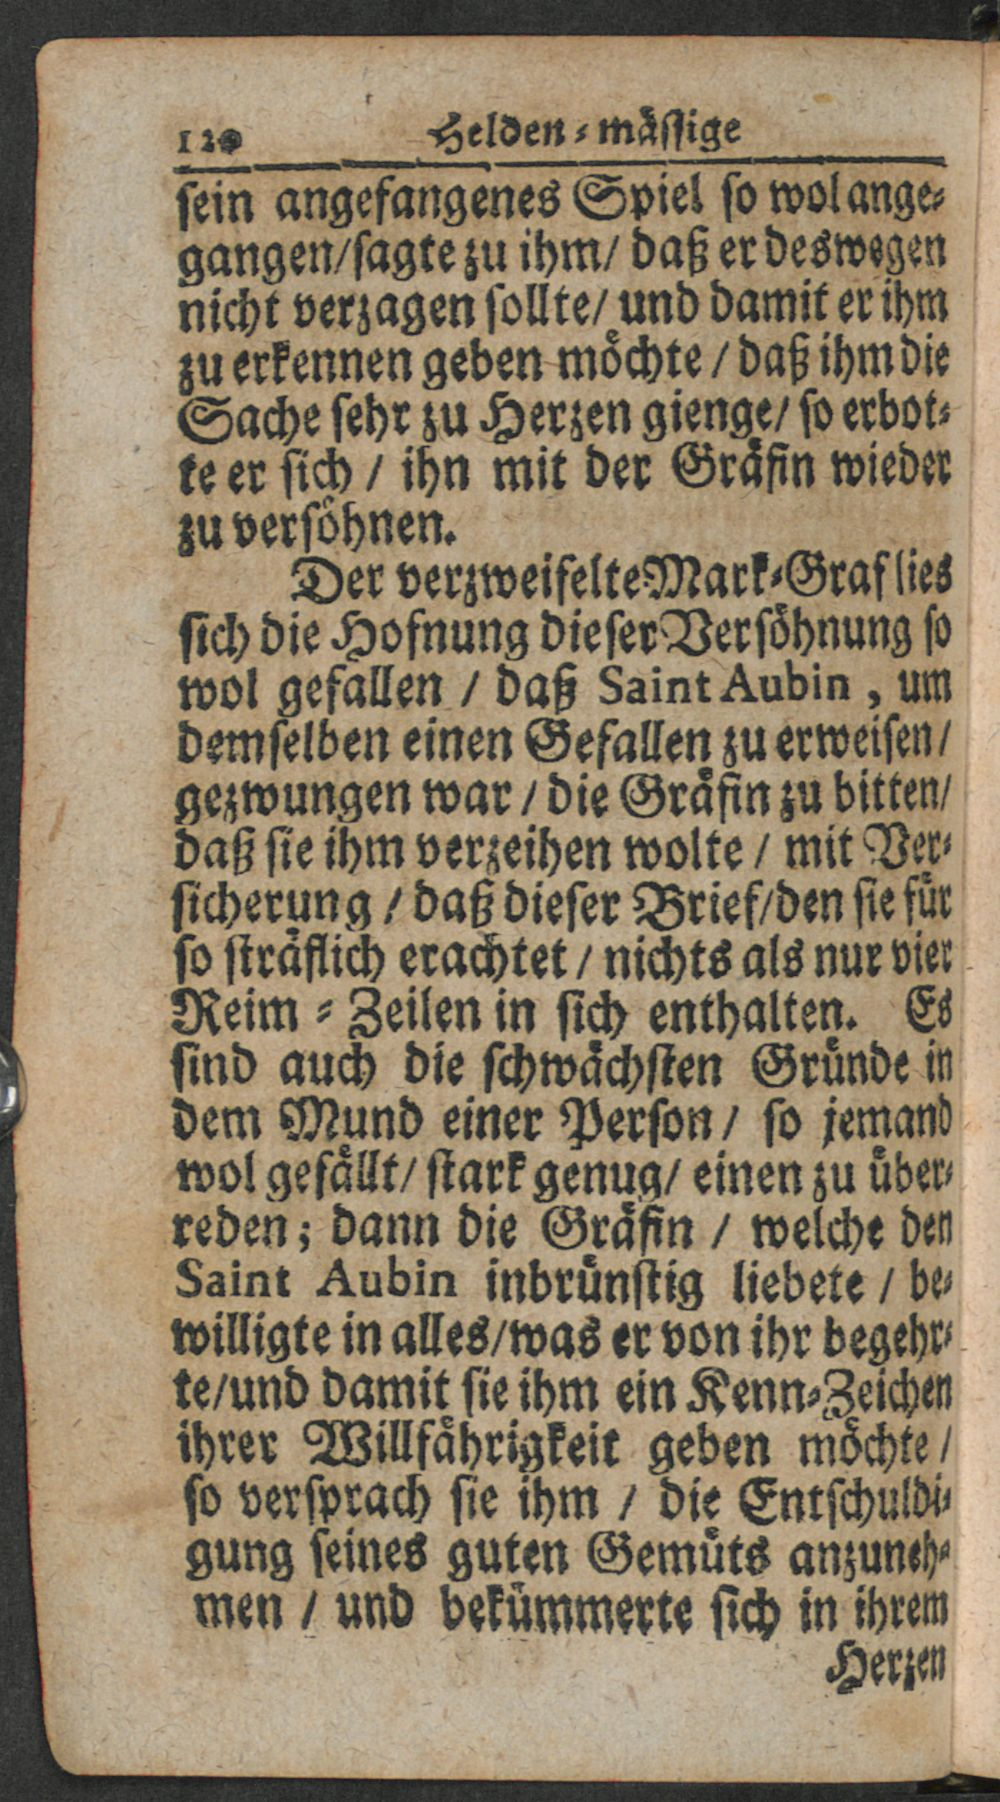 120 Helden-mässige
sein angefangenes Spiel so wol ange-
gangen/sagte zu ihm/ daß er deswegen
nicht verzagen sollte/ und damit er ihm
zu erkennen geben möchte / daß ihm die
Sache sehr zu Herzen gienge/ so erbot-
te er sich / ihn mit der Gräfin wieder
zu versöhnen.
Der verzweifelte Mark-Graf lies
sich die Hofnung dieser Versöhnung so
wol gefallen / daß Saint Aubin, um
demselben einen Gefallen zu erweisen/
gezwungen war / die Gräfin zu bitten/
daß sie ihm verzeihen wolte / mit Ver-
sicherung / daß dieser Brief/den sie für
so sträflich erachtet / nichts als nur vier
Reim-Zeilen in sich enthalten. Es
sind auch die schwächsten Gründe in
dem Mund einer Person / so jemand
wol gefällt/ stark genug/ einen zu über-
reden; dann die Gräfin / welche den
Saint Aubin inbrünstig liebete / be-
willigte in alles/was er von ihr begehr-
te/und damit sie ihm ein Kenn-Zeichen
ihrer Willfährigkeit geben möchte /
so versprach sie ihm / die Entschuldi-
gung seines guten Gemüts anzuneh-
men / und bekümmerte sich in ihrem
Herzen